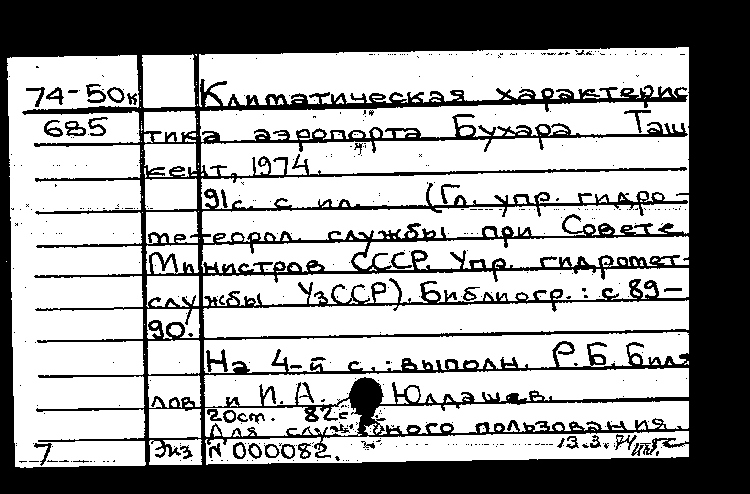 74-50к Климатическая характерис
685 тика аэропорта Бухара. Таш
кент, 1974.
91с. с ил. (Гл. упр. гидро-
метеорол. службы при Совете
Министров СССР. Упр. гидромет-
службы УзССР). Библиогр.: с 89-
90.
На 4-й с.: выполн. Р.Б. Биля
лов и И.А. Юлдашев.
20см. 82с
Для служебного пользования.
7 Экз N 000082. 13.3.74